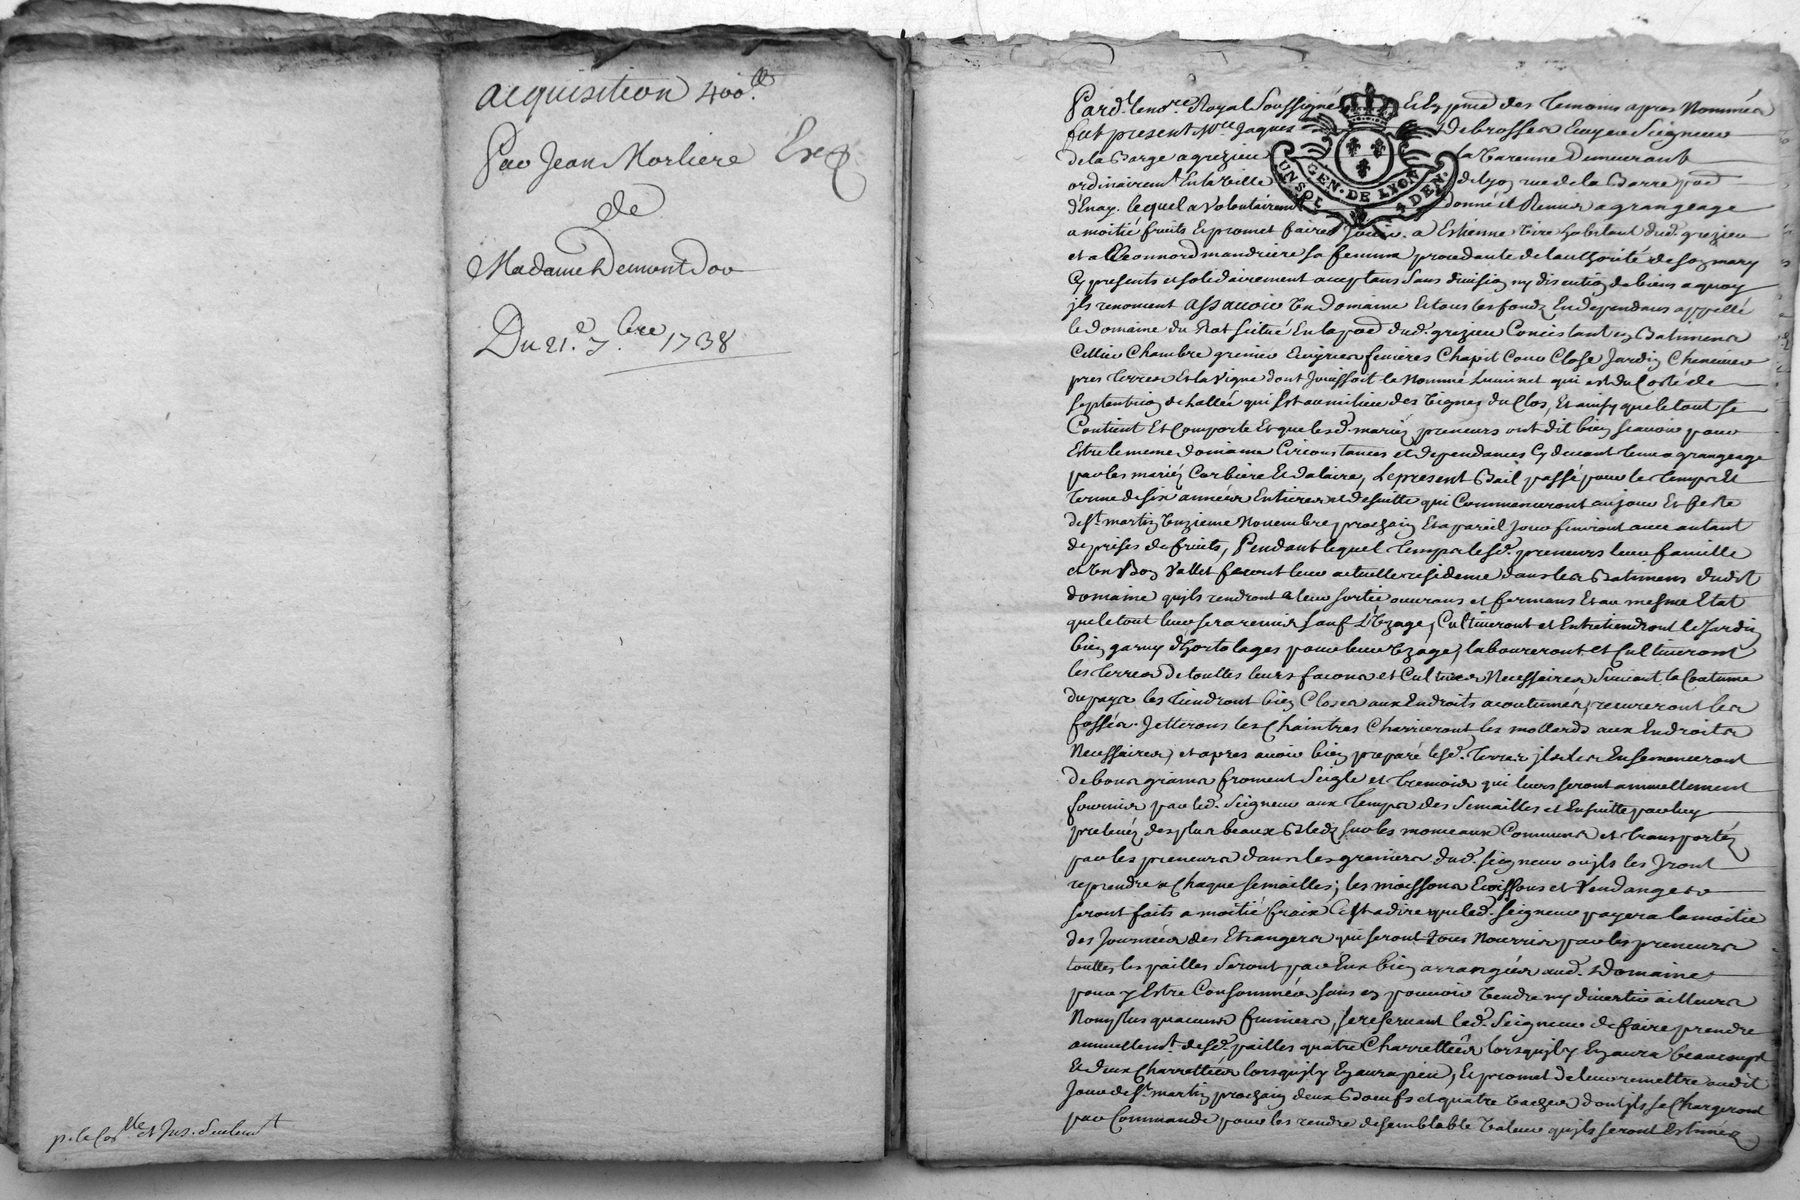 acquisition 400.ll
Par Jean Morliere Exp
de
Madame Demontdor
Du 21.e 7.bre 1738
p. le Con.lle et Ins. Seulem.t
GEN. DE LYON
UN SOL 4 DEN.
Pard.t le no.re Royal Soussigné Et En pnce des Temoins apres Nommés
fut present M.re Jaques De brosses Ecuyer Seigneur
de la Barge a grezieu la Varenne Demeurant
ordinairem.t En la Ville de Lyon rue de la Barre parr.
d'Enay. lequel a Volontairem.t donné et Remis a grangeage
a moitié fruits Et promet faire Jouir. a Estienne Tire habitant dud. grezieu
et a Leonnord mandriere sa femme procedante de l'authorité de son mary
Cy presents et solidairement acceptans sans division ny discution de biens a quoy
jls renoncent assavoir Un Domaine Et tous les fondz En dependans appellé
le domaine du Rat situé En la parr. dud. grezieu Consistant en Batimens
Cellier Chambre grenier Ecuyries fenieres Chapit Cour Close Jardin Chenevier
prés terres Et la Vigne dont Jouissoit le Nommé Luminet qui est du Costé de
septentrion de l'allée qui Est au milieu des Vignes du Clos, Et ainsy que le tout se
Contient Et Comporte Et que lesd. mariés preneurs ont dit bien scavoir pour
Estre le meme domaine Circonstances et dependances Cy devant tenu a grangeage
par les mariés Corbiere Et dalaire, Le present Bail passé pour le temps Et
terme de six années Entieres et de suitte qui Commenceront au jour Et feste
de S.t martin Unzieme Novembre prochain Et a pareil Jour finiront avec autant
de prises de fruits, Pendant lequel temps lesd. preneurs leur famille
et Un Bon Vallet feront leur actuelle residence dans les Batimens dudit
domaine qu'jls rendront a leur sortie ouvrans et fermans Et au mesme Etat
que le tout leur sera remis sauf L'Uzage, Cultiveront et Entretiendront le Jardin
bien garny d'hortolages pour leur Uzage, laboureront et Cultiveront
les terres de touttes leurs facons et Cultures Necessaires Suivant la Coutume
du pays les tiendront bien Closes aux Endroits acoutumés, recureront les
fossés. Jetterons les Chaintres Charrieront les mollards aux Endroits
Necessaires, et apres avoir bien preparé lesd. terres jls les Ensemenceront
de bons grains froment Seigle et Tremois qui leurs seront annuellement
fournis par led. Seigneur aux temps des Semailles et Ensuitte par luy
prelevés des plus beaux Bledz sur les monceaux Communs et transportés
par les preneurs dans les greniers dud. seigneur ou jls les Jront
reprendre a Chaque semailles; les moissons Ecossons et Vendanges
seront faits a moitié fraix C'est a dire que led. seigneur payera la moitié
des Journées des Etrangers qui seront tous Nourris par les preneurs
touttes les pailles Seront par Eux bien arrangées aud. Domaine
pour y Estre Consommées sans en pouvoir Vendre ny divertir ailleurs
Non plus qu'aucuns fumiers, se reservant led. Seigneur de faire prendre
annuellem.t desd. pailles quatre Charrettées lorsqu'jl y En aura beaucoup
Et deux Charrettées lorsqu'jl y En aura peu, Et promet de leur remettre audit
Jour de S.t martin prochain deux Boeufs et quatre Vaches dont jls se Chargeront
par Commande pour les rendre de semblable Valeur qu'jls seront Estimés